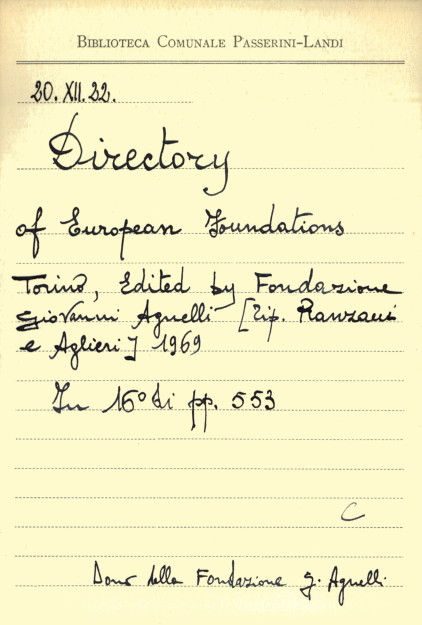 BIBLIOTECA COMUNALE PASSERINI-LANDI
20.XII.22.
Directory
of European Foundations
Torino, Edited by Fondazione
Giovanni Agnelli [Tip. Ranzani
e Aglieri] 1969
In 16° di pp. 553
C
Dono della Fondazione G. Agnelli